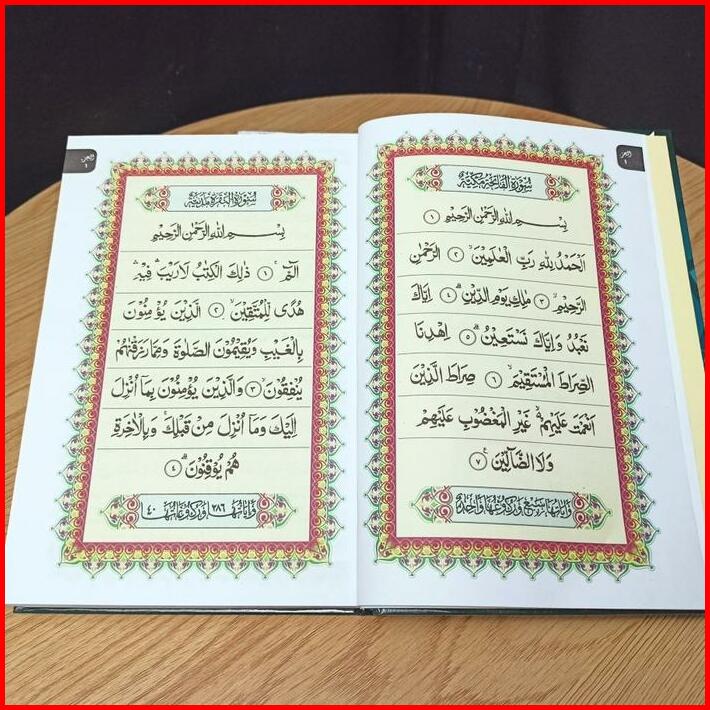 الجزء
١
سُوْرَةُ الْفَاتِحَةِ مَكِّيَّةٌ
بِسْمِ اللهِ الرَّحْمٰنِ الرَّحِيْمِ ١
اَلْحَمْدُ لِلهِ رَبِّ الْعٰلَمِيْنَۙ ٢ الرَّحْمٰنِ
الرَّحِيْمِۙ ٣ مٰلِكِ يَوْمِ الدِّيْنِۗ ٤ اِيَّاكَ
نَعْبُدُ وَاِيَّاكَ نَسْتَعِيْنُۗ ٥ اِهْدِنَا
الصِّرَاطَ الْمُسْتَقِيْمَۙ ٦ صِرَاطَ الَّذِيْنَ
اَنْعَمْتَ عَلَيْهِمْ ۙ غَيْرِ الْمَغْضُوْبِ عَلَيْهِمْ
وَلَا الضَّاۤلِّيْنَ ۚ ٧
وَاٰيَاتُهَا سَبْعٌ وَرُكُوْعُهَا وَاحِدٌ
الجزء
١
سُوْرَةُ الْبَقَرَةِ مَدَنِيَّةٌ
بِسْمِ اللهِ الرَّحْمٰنِ الرَّحِيْمِ
الۤمّۤ ۚ ١ ذٰلِكَ الْكِتٰبُ لَا رَيْبَ ۛ فِيْهِ ۛ
هُدًى لِّلْمُتَّقِيْنَۙ ٢ الَّذِيْنَ يُؤْمِنُوْنَ
بِالْغَيْبِ وَيُقِيْمُوْنَ الصَّلٰوةَ وَمِمَّا رَزَقْنٰهُمْ
يُنْفِقُوْنَۙ ٣ وَالَّذِيْنَ يُؤْمِنُوْنَ بِمَآ اُنْزِلَ
اِلَيْكَ وَمَآ اُنْزِلَ مِنْ قَبْلِكَ ۚ وَبِالْاٰخِرَةِ
هُمْ يُوْقِنُوْنَۗ ٤
وَاٰيَاتُهَا ٢٨٦ وَرُكُوْعَاتُهَا ٤٠